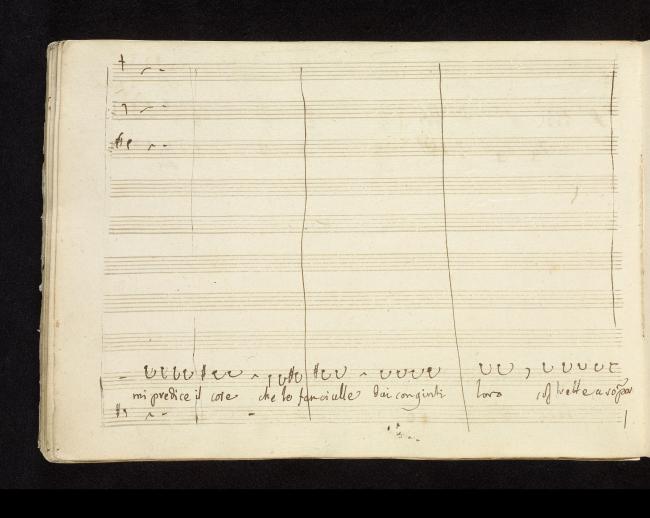 mi predice il core che le fanciulle dai congiunti loro